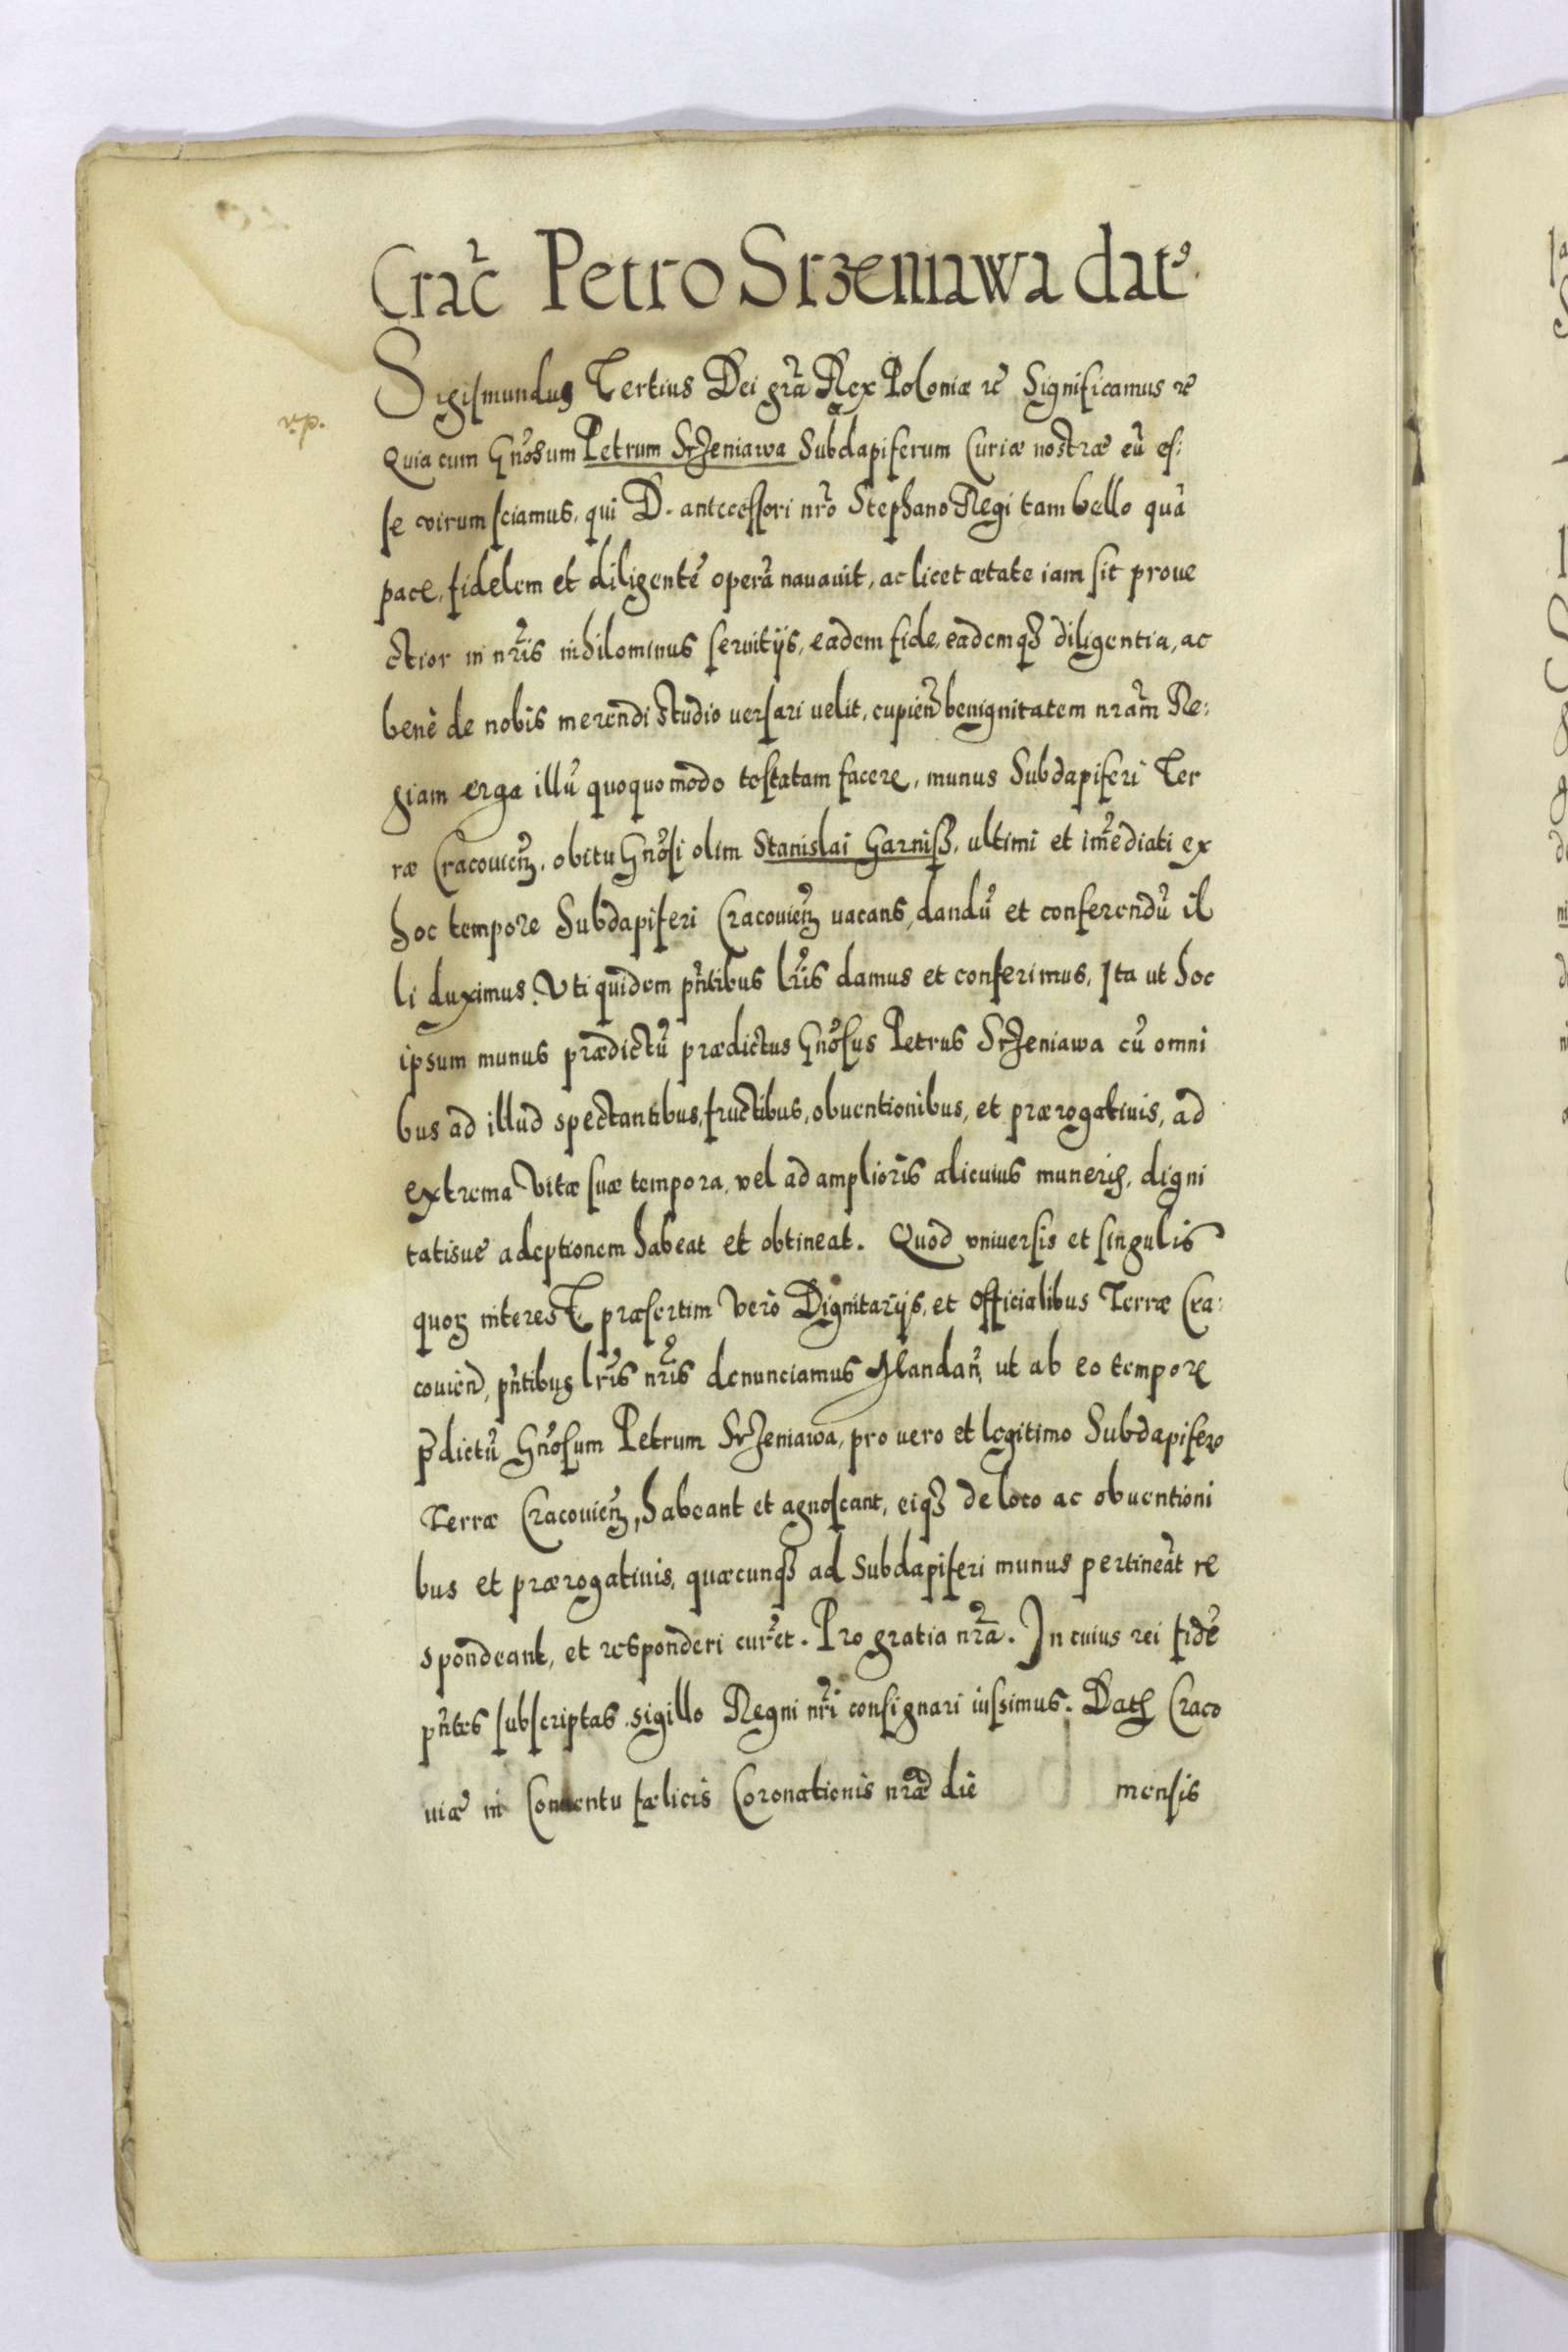 Crac̃ Petro Srzeniawa datꝰ.
Sigismundus Tertius Dei gr̃a Rex Poloniæ ꝛc̃ Significamus ꝛc̃
v.p.
Quia cum Gño͂sum Petrum Srzeniawa Subdapiferum Curiæ nostræ eũ es:
se virum sciamus, qui D. antecessori nr̃o Stephano Regi tam bello quã
pace, fidelem et diligentẽ operã nauauit, ac licet ætate iam sit proue
ctior in nr̃is nihilominus seruitijs, eadem fide, eademqꝫ diligentia, ac
benè de nobis merendi studio uersari uelit, cupieñ benignitatem nr̃am Re:
giam erga illũ quoquomodo testatam facere, munus Subdapiferi Ter
ræ Cracouieñ, obitu Gño͂si olim Stanislai Garnisz, ultimi et im̃ediati ex
hoc tempore Subdapiferi Cracouieñ uacans, dandũ et conferendũ il
li duximus. Vti quidem pñtibus lr̃is damus et conferimus, Ita ut hoc
ipsum munus prædictũ prædictus Gño͂sus Petrus Srzeniawa cũ omni
bus ad illud spectantibus, fructibus, obuentionibus, et prærogatiuis, ad
extrema vitæ suæ tempora, vel ad amplioris alicuius muneris, digni
tatisuè adeptionem habeat et obtineat. Quod vniuersis et singulis
quoꝝ interest, præsertim verò Dignitarijs, et Officialibus Terræ Cra:
couieñ, pñtibus lr̃is nr̃is denunciamus Mandañ, ut ab eo tempore
p̃dictũ Gño͂sum Petrum Srzeniawa, pro uero et legitimo Subdapifero
Terræ Cracouieñ, habeant et agnoscant, eiqꝫ de loco ac obuentioni
bus et prærogatiuis, quæcunqꝫ ad Subdapiferi munus pertineãt re
spondeant, et responderi curẽt. Pro gratia nr̃a. In cuius rei fidẽ
pñtes subscriptas sigillo Regni nr̃i consignari iussimus. Datꝭ Craco
uiæ in Conuentu fælicis Coronationis nr̃æ die mensis